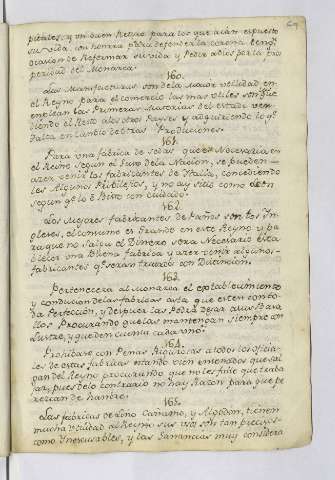 pitales, y un buen Retiro para los que aian expuesto
su vida con honrra p.ª defender la corona tengan
ocasion de Reformar su vida y Pedir adios por la pros
peridad del Monarca.
160.
Las Manufacturas son de la Maior utilidad en
el Reyno para el comercio las mas utiles son que
emplean las Primeras Materias del estado ven
diendo el Resto alos otros Payses y adquiriendo lo q.e
falta en Cambio de otras Produciones.
161.
Para una fabrica de sedas que es Necesaria en
el Reyno segun el Luxo de la Nacion, se pueden
azer venir los fabricantes de Italia, concediendo
les Algunos Pribilejios, y no ay sitio como
segun yo lo è Bisto con cuidado.
162.
Los Mejores fabricantes de Paños son los Yn
gleses, el consumo es Grande en este Reyno y pa
ra que no salga el Dinero sera Necesario esta
blecer una Buena fabrica y azer venir algunos,
fabricantes q.e seran tratados con Distincion.
163.
Pertenecera al Monarca el establecimiento
y condicion de las fabricas asta que esten con to
da Perfeccion, y despues las Podra dejar a sus Basa
llos Procurando que las mantengan siempre con
Lustre, y que den cuenta cada año.
164.
Prohibase con Penas Rigurosas a todos los oficia
les de estas fabricas estando bien entendidos que sal
gan del Reyno procurando que no les falte que traba
jar, pues de lo contrario no hay Razon para que pe
rezcan de hambre.
165.
Las fabricas de Lino Cañamo, y Algodon, tienen
mucha utilidad al Reyno sus usos son tan precisos
como Ynescusables, y las Ganancias muy considera